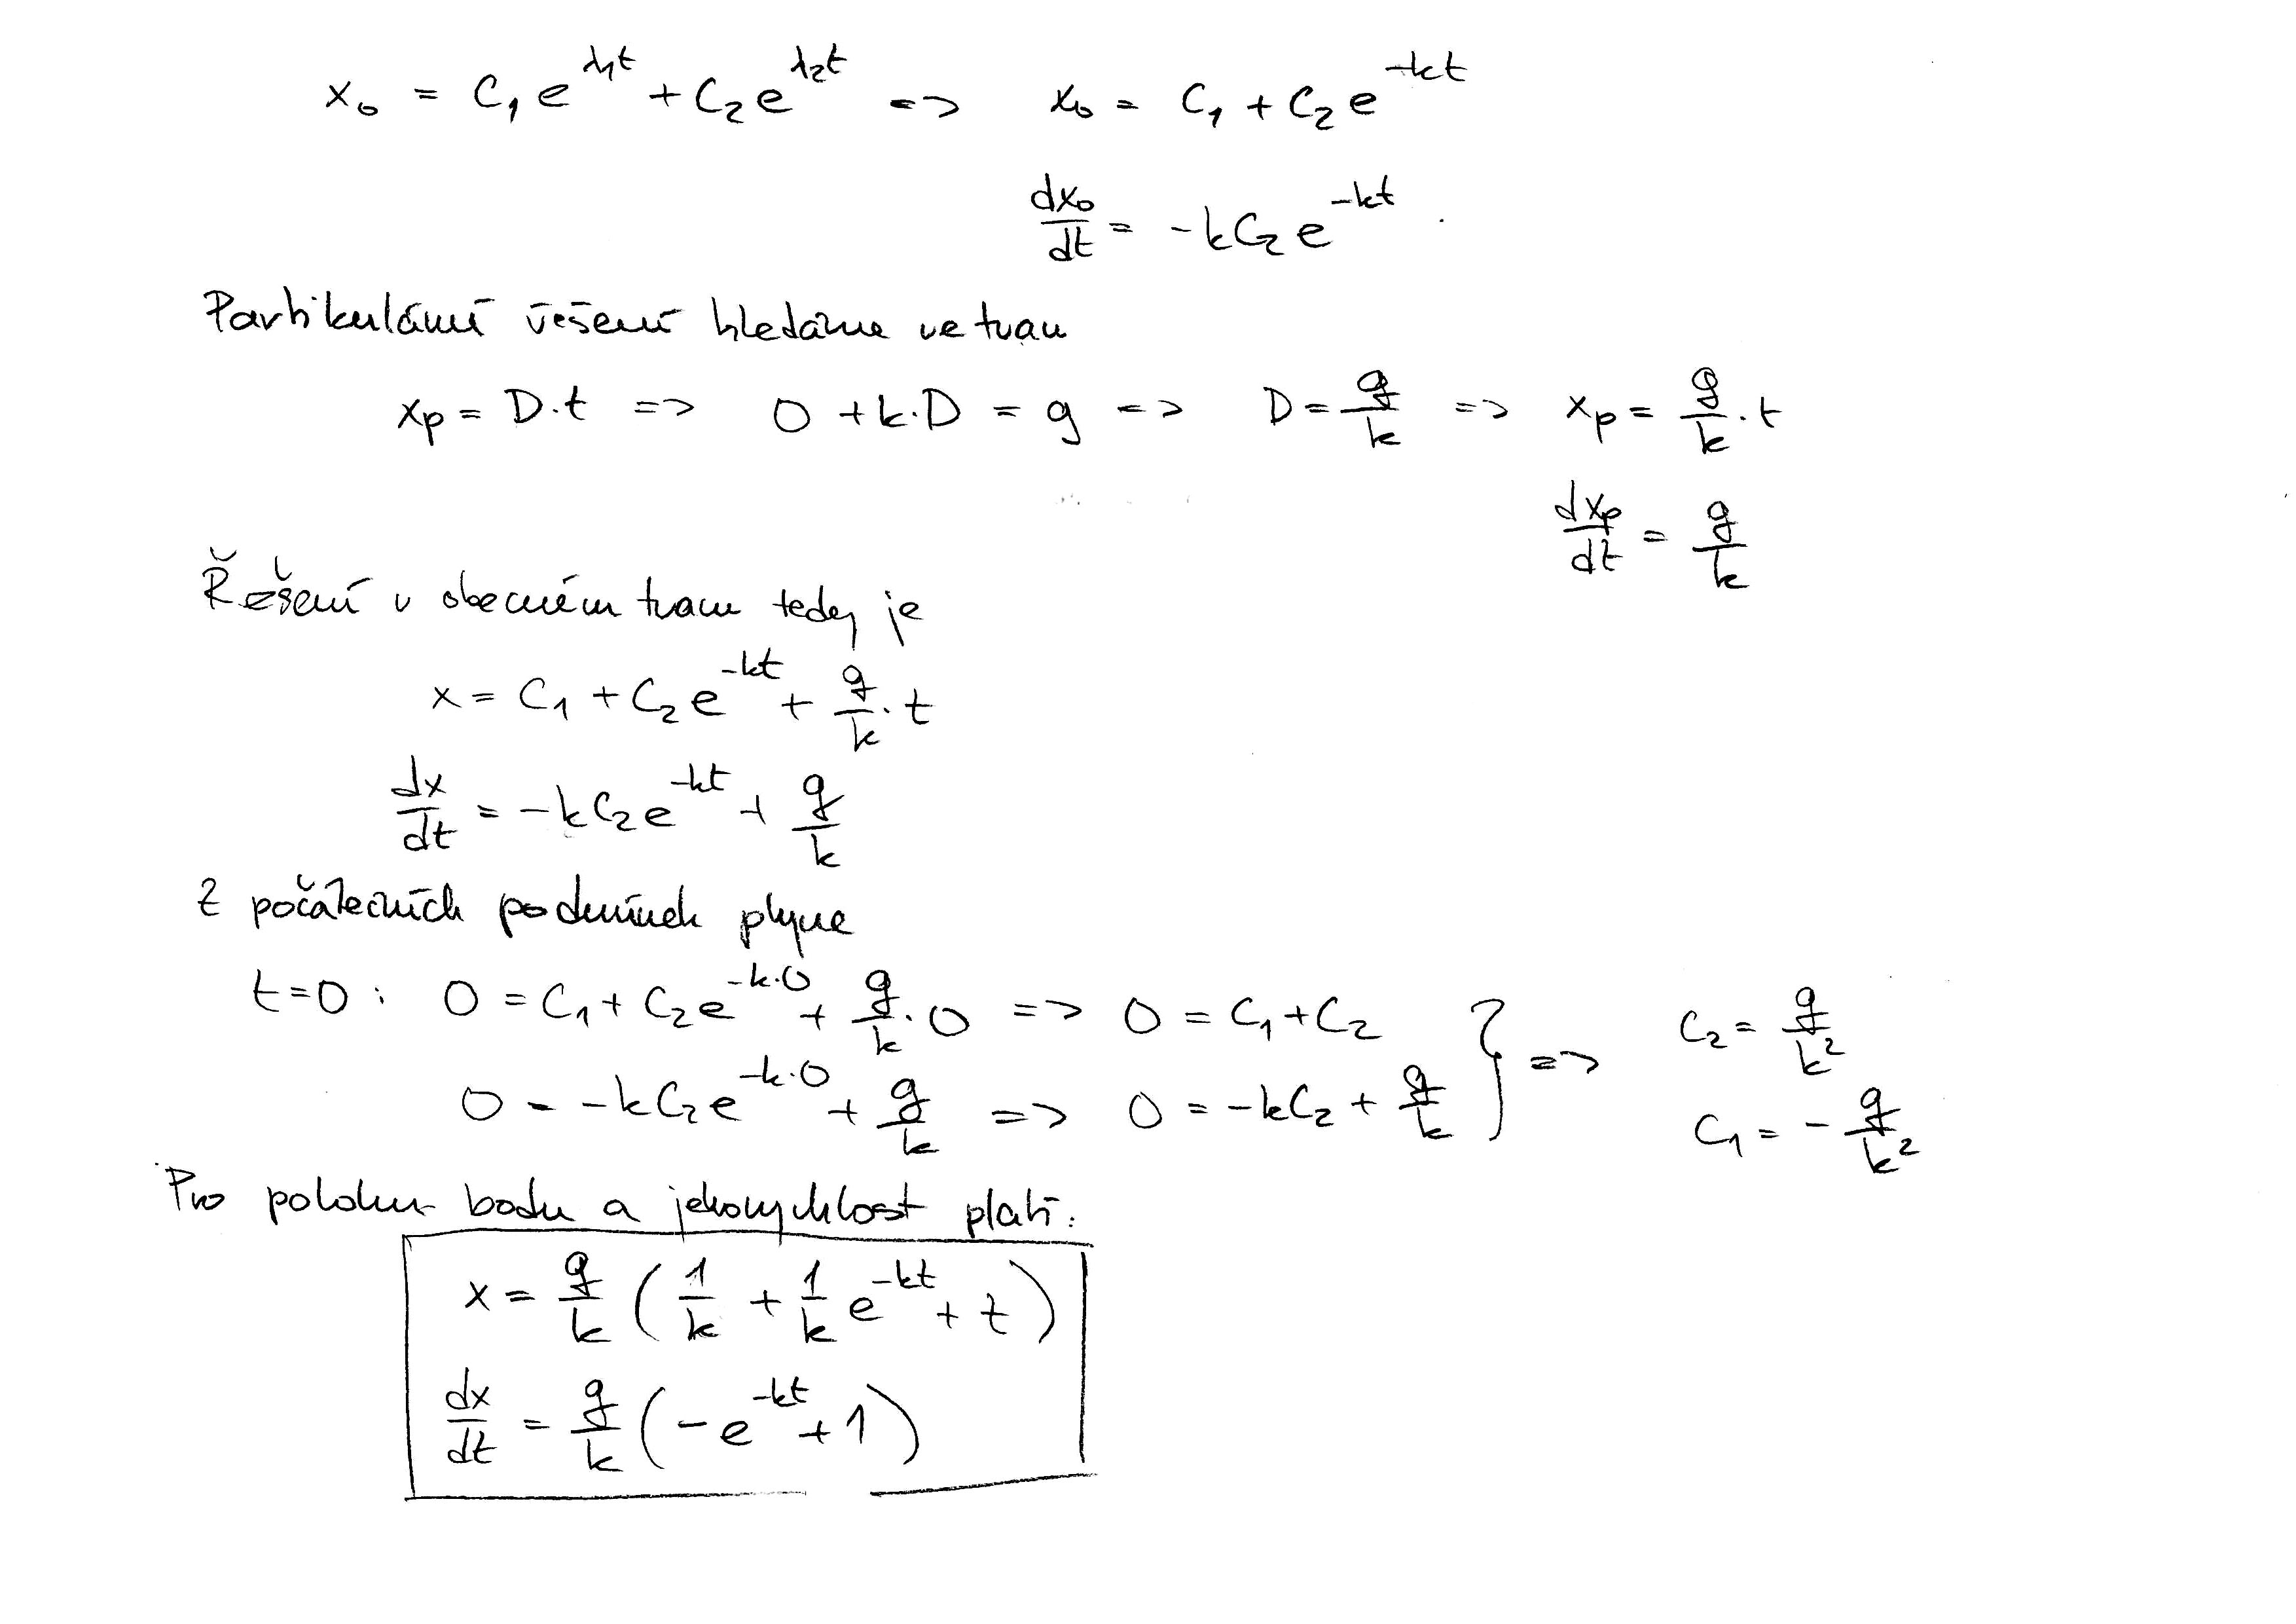 x₀ = C₁e^{λ₁t} + C₂e^{λ₂t} => x₀ = C₁ + C₂e^{-kt}
dx₀/dt = -kC₂e^{-kt}.
Partikulární řešení hledáme ve tvaru
xp = D·t => 0 + k·D = g => D = g/k => xp = g/k · t
dxp/dt = g/k
Řešení v obecném tvaru tedy je
x = C₁ + C₂e^{-kt} + g/k · t
dx/dt = -kC₂e^{-kt} + g/k
Z počátečních podmínek plyne
t=0: 0 = C₁ + C₂e^{-k·0} + g/k · 0 => 0 = C₁ + C₂ } => C₂ = g/k²
0 = -kC₂e^{-k·0} + g/k => 0 = -kC₂ + g/k C₁ = - g/k²
Pro polohu bodu a jeho rychlost platí:
x = g/k (1/k + 1/k e^{-kt} + t)
dx/dt = g/k (-e^{-kt} + 1)